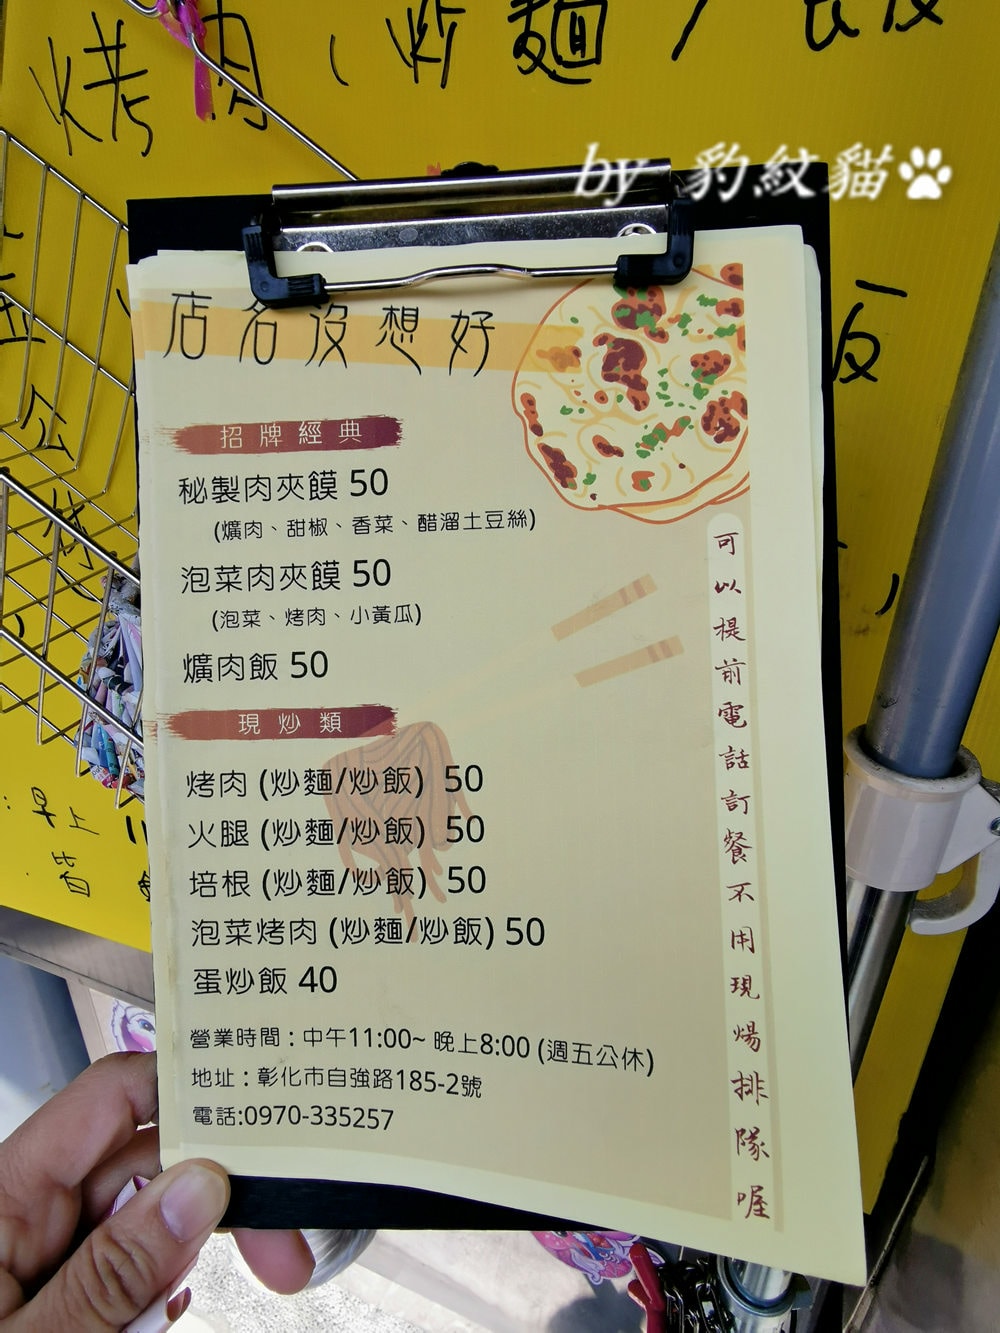 烤肉、炒麵/
by 豹紋貓
店名沒想好
招牌經典
秘製肉夾饃 50
(爌肉、甜椒、香菜、醋溜土豆絲)
泡菜肉夾饃 50
(泡菜、烤肉、小黃瓜)
爌肉飯 50
現炒類
烤肉 (炒麵/炒飯) 50
火腿 (炒麵/炒飯) 50
培根 (炒麵/炒飯) 50
泡菜烤肉 (炒麵/炒飯) 50
蛋炒飯 40
營業時間：中午11:00~ 晚上8:00 (週五公休)
地址：彰化市自強路185-2號
電話:0970-335257
可以提前電話訂餐不用現煬排隊喔
早上 11
皆